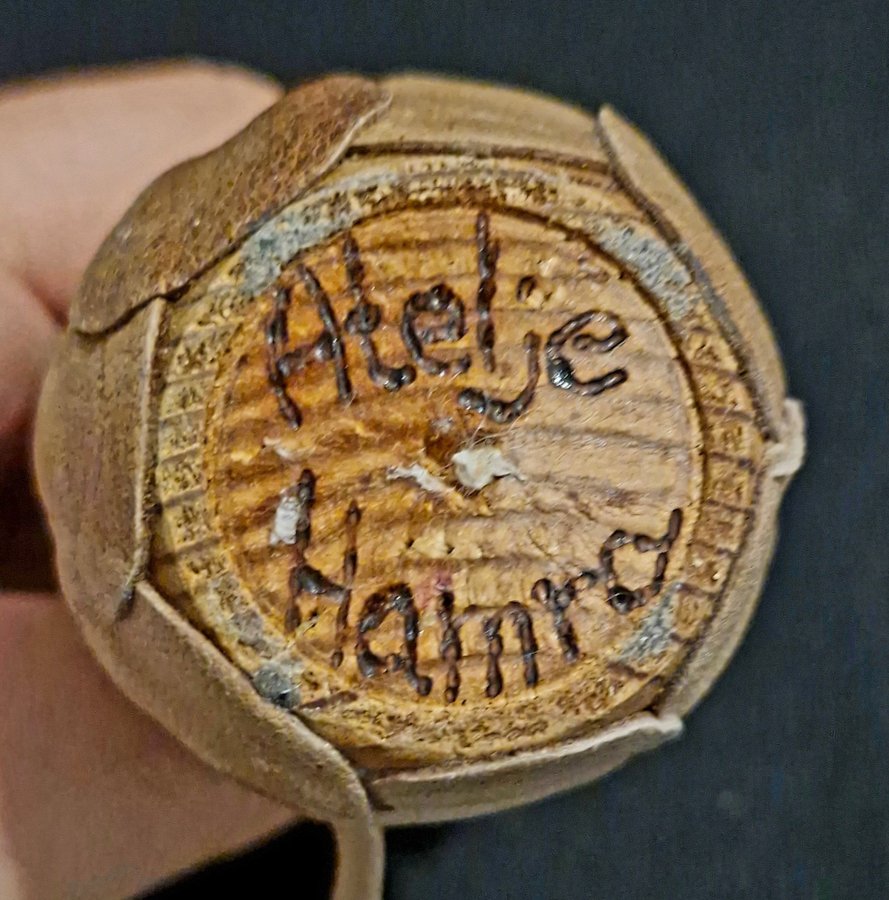 Atelje
Hamra